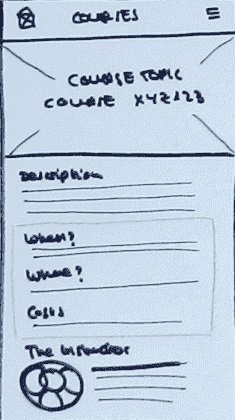 COURSES
COURSE TOPIC
COURSE XYZ123
Description
When?
Where?
Costs
The Instructor